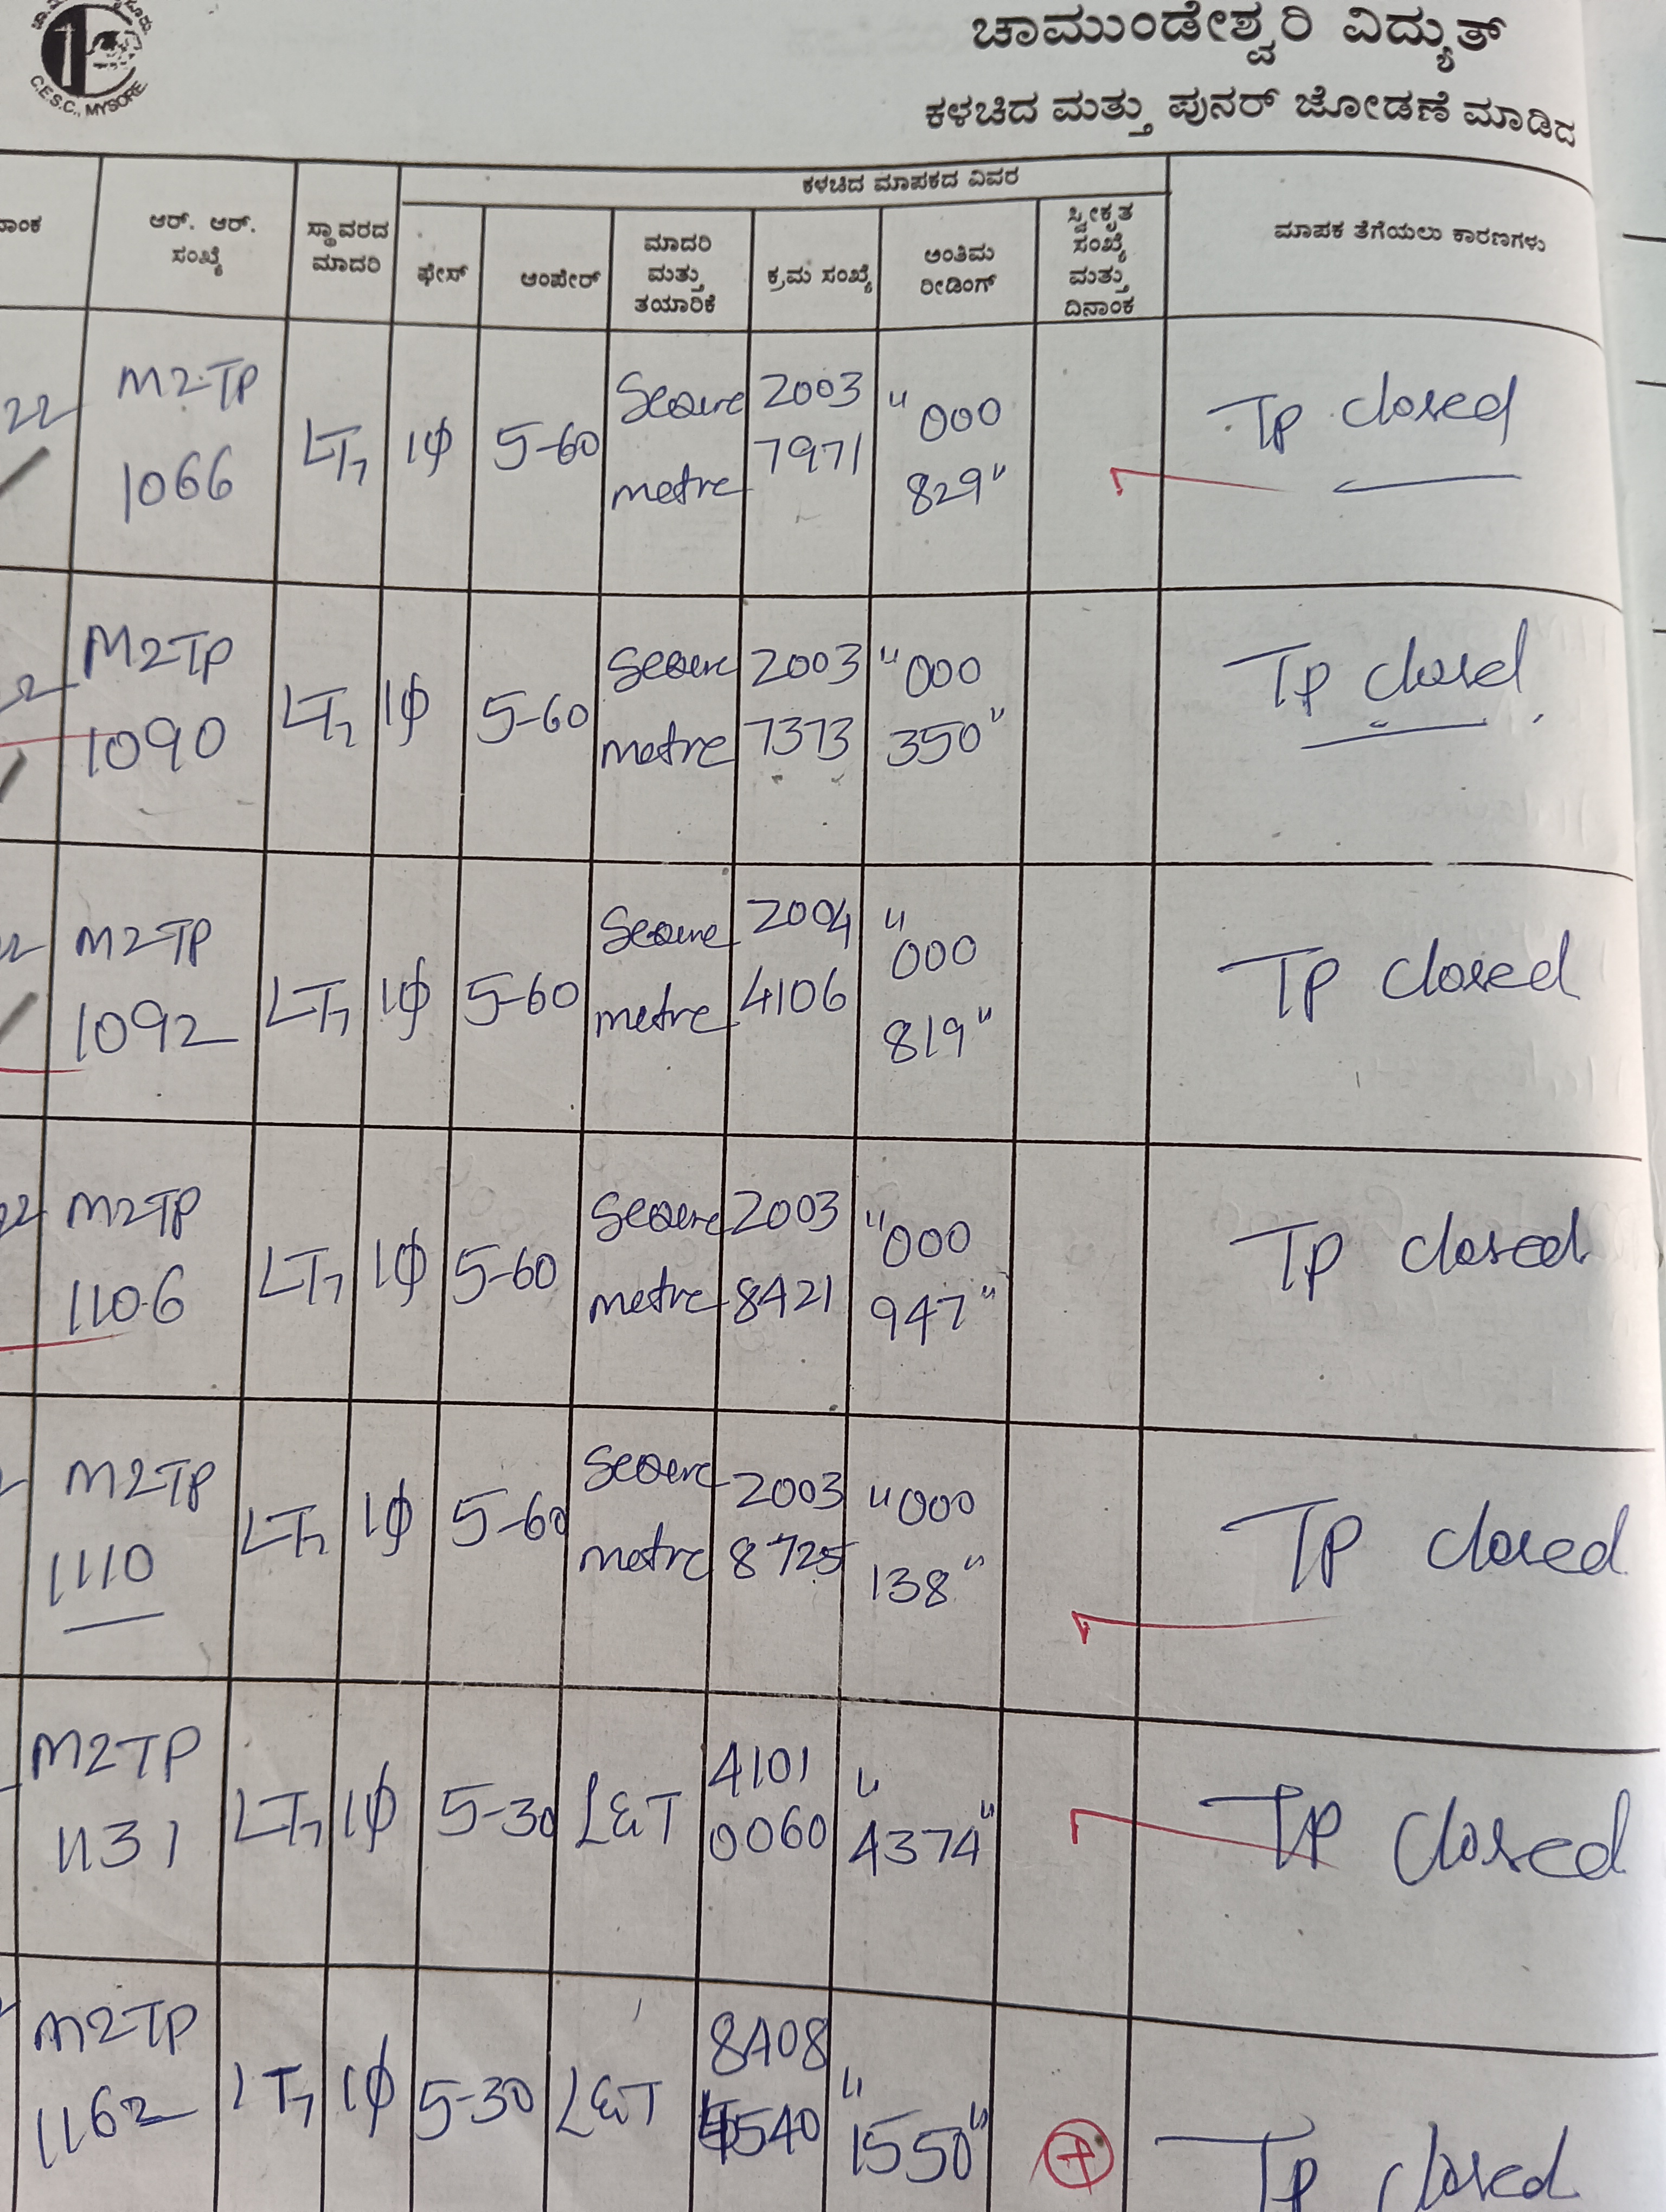 C.E.S.C., MYSORE
ಚಾಮುಂಡೇಶ್ವರಿ ವಿದ್ಯುತ್
ಕಳಚಿದ ಮತ್ತು ಪುನರ್ ಜೋಡಣೆ ಮಾಡಿದ
ಕಳಚಿದ ಮಾಪಕದ ವಿವರ
ಆರ್. ಆರ್.
ಸಂಖ್ಯೆ
ಸ್ಥಾವರದ
ಮಾದರಿ
ಫೇಸ್
ಆಂಪೇರ್
ಮಾದರಿ
ಮತ್ತು
ತಯಾರಿಕೆ
ಕ್ರಮ ಸಂಖ್ಯೆ
ಅಂತಿಮ
ರೀಡಿಂಗ್
ಸ್ವೀಕೃತ
ಸಂಖ್ಯೆ
ಮತ್ತು
ದಿನಾಂಕ
ಮಾಪಕ ತೆಗೆಯಲು ಕಾರಣಗಳು
22 M2TP Secure 2003 "000 TP closed
1066 LT7 1φ 5-60 metre 7971 829"
22 M2TP Secure 2003 "000 TP closed
1090 LT2 1φ 5-60 metre 7373 350"
22 M2TP Secure 2004 "000 TP closed
1092 LT7 1φ 5-60 metre 4106 819"
22 M2TP Secure 2003 "000 TP closed
1106 LT7 1φ 5-60 metre 8421 947"
M2TP Secure 2003 "000 TP closed
1110 LT7 1φ 5-60 metre 8725 138"
M2TP 4101
1131 LT7 1φ 5-30 L&T 0060 "4374" TP closed
M2TP 8408
1162 LT7 1φ 5-30 L&T 5540 "1550" TP closed